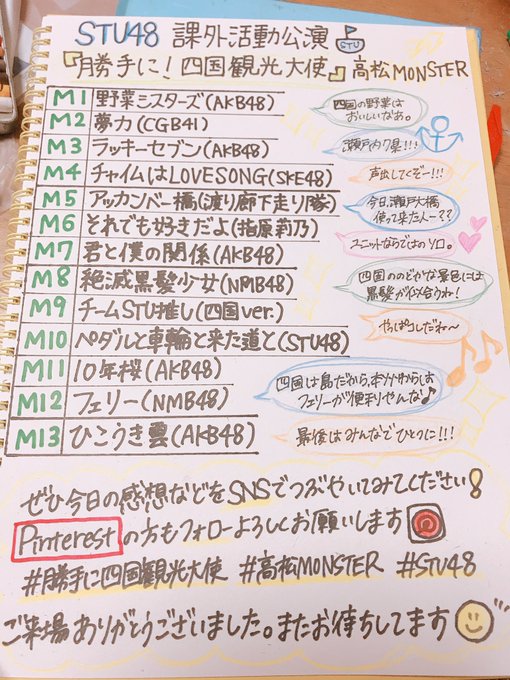 STU48 課外活動公演 STU
『勝手に!四国観光大使』高松MONSTER
M1 野菜シスターズ(AKB48)
四国の野菜は
おいしいなあ。
M2 夢力(CGB41)
M3 ラッキーセブン(AKB48)
瀬戸内7県!!!
M4 チャイムはLOVESONG(SKE48)
声出してくぞー!!!
M5 アッカンベー橋(渡り廊下走り隊)
今日、瀬戸大橋
使って来た人ー??
M6 それでも好きだよ(指原莉乃)
M7 君と僕の関係(AKB48)
ユニットならではのソロ。
M8 絶滅黒髪少女(NMB48)
四国ののどかな景色には
黒髪が似合うわ!
M9 チームSTU推し(四国ver.)
やっぱコレだね〜
M10 ペダルと車輪と来た道と(STU48)
M11 10年桜(AKB48)
四国は島だから、本州からは
フェリーが便利やんな♪
M12 フェリー(NMB48)
M13 ひこうき雲(AKB48)
最後はみんなでひとつに!!!
ぜひ今日の感想などをSNSでつぶやいてみてください!
Pinterestの方もフォローよろしくお願いします
#勝手に四国観光大使 #高松MONSTER #STU48
ご来場ありがとうございました。またお待ちしてます